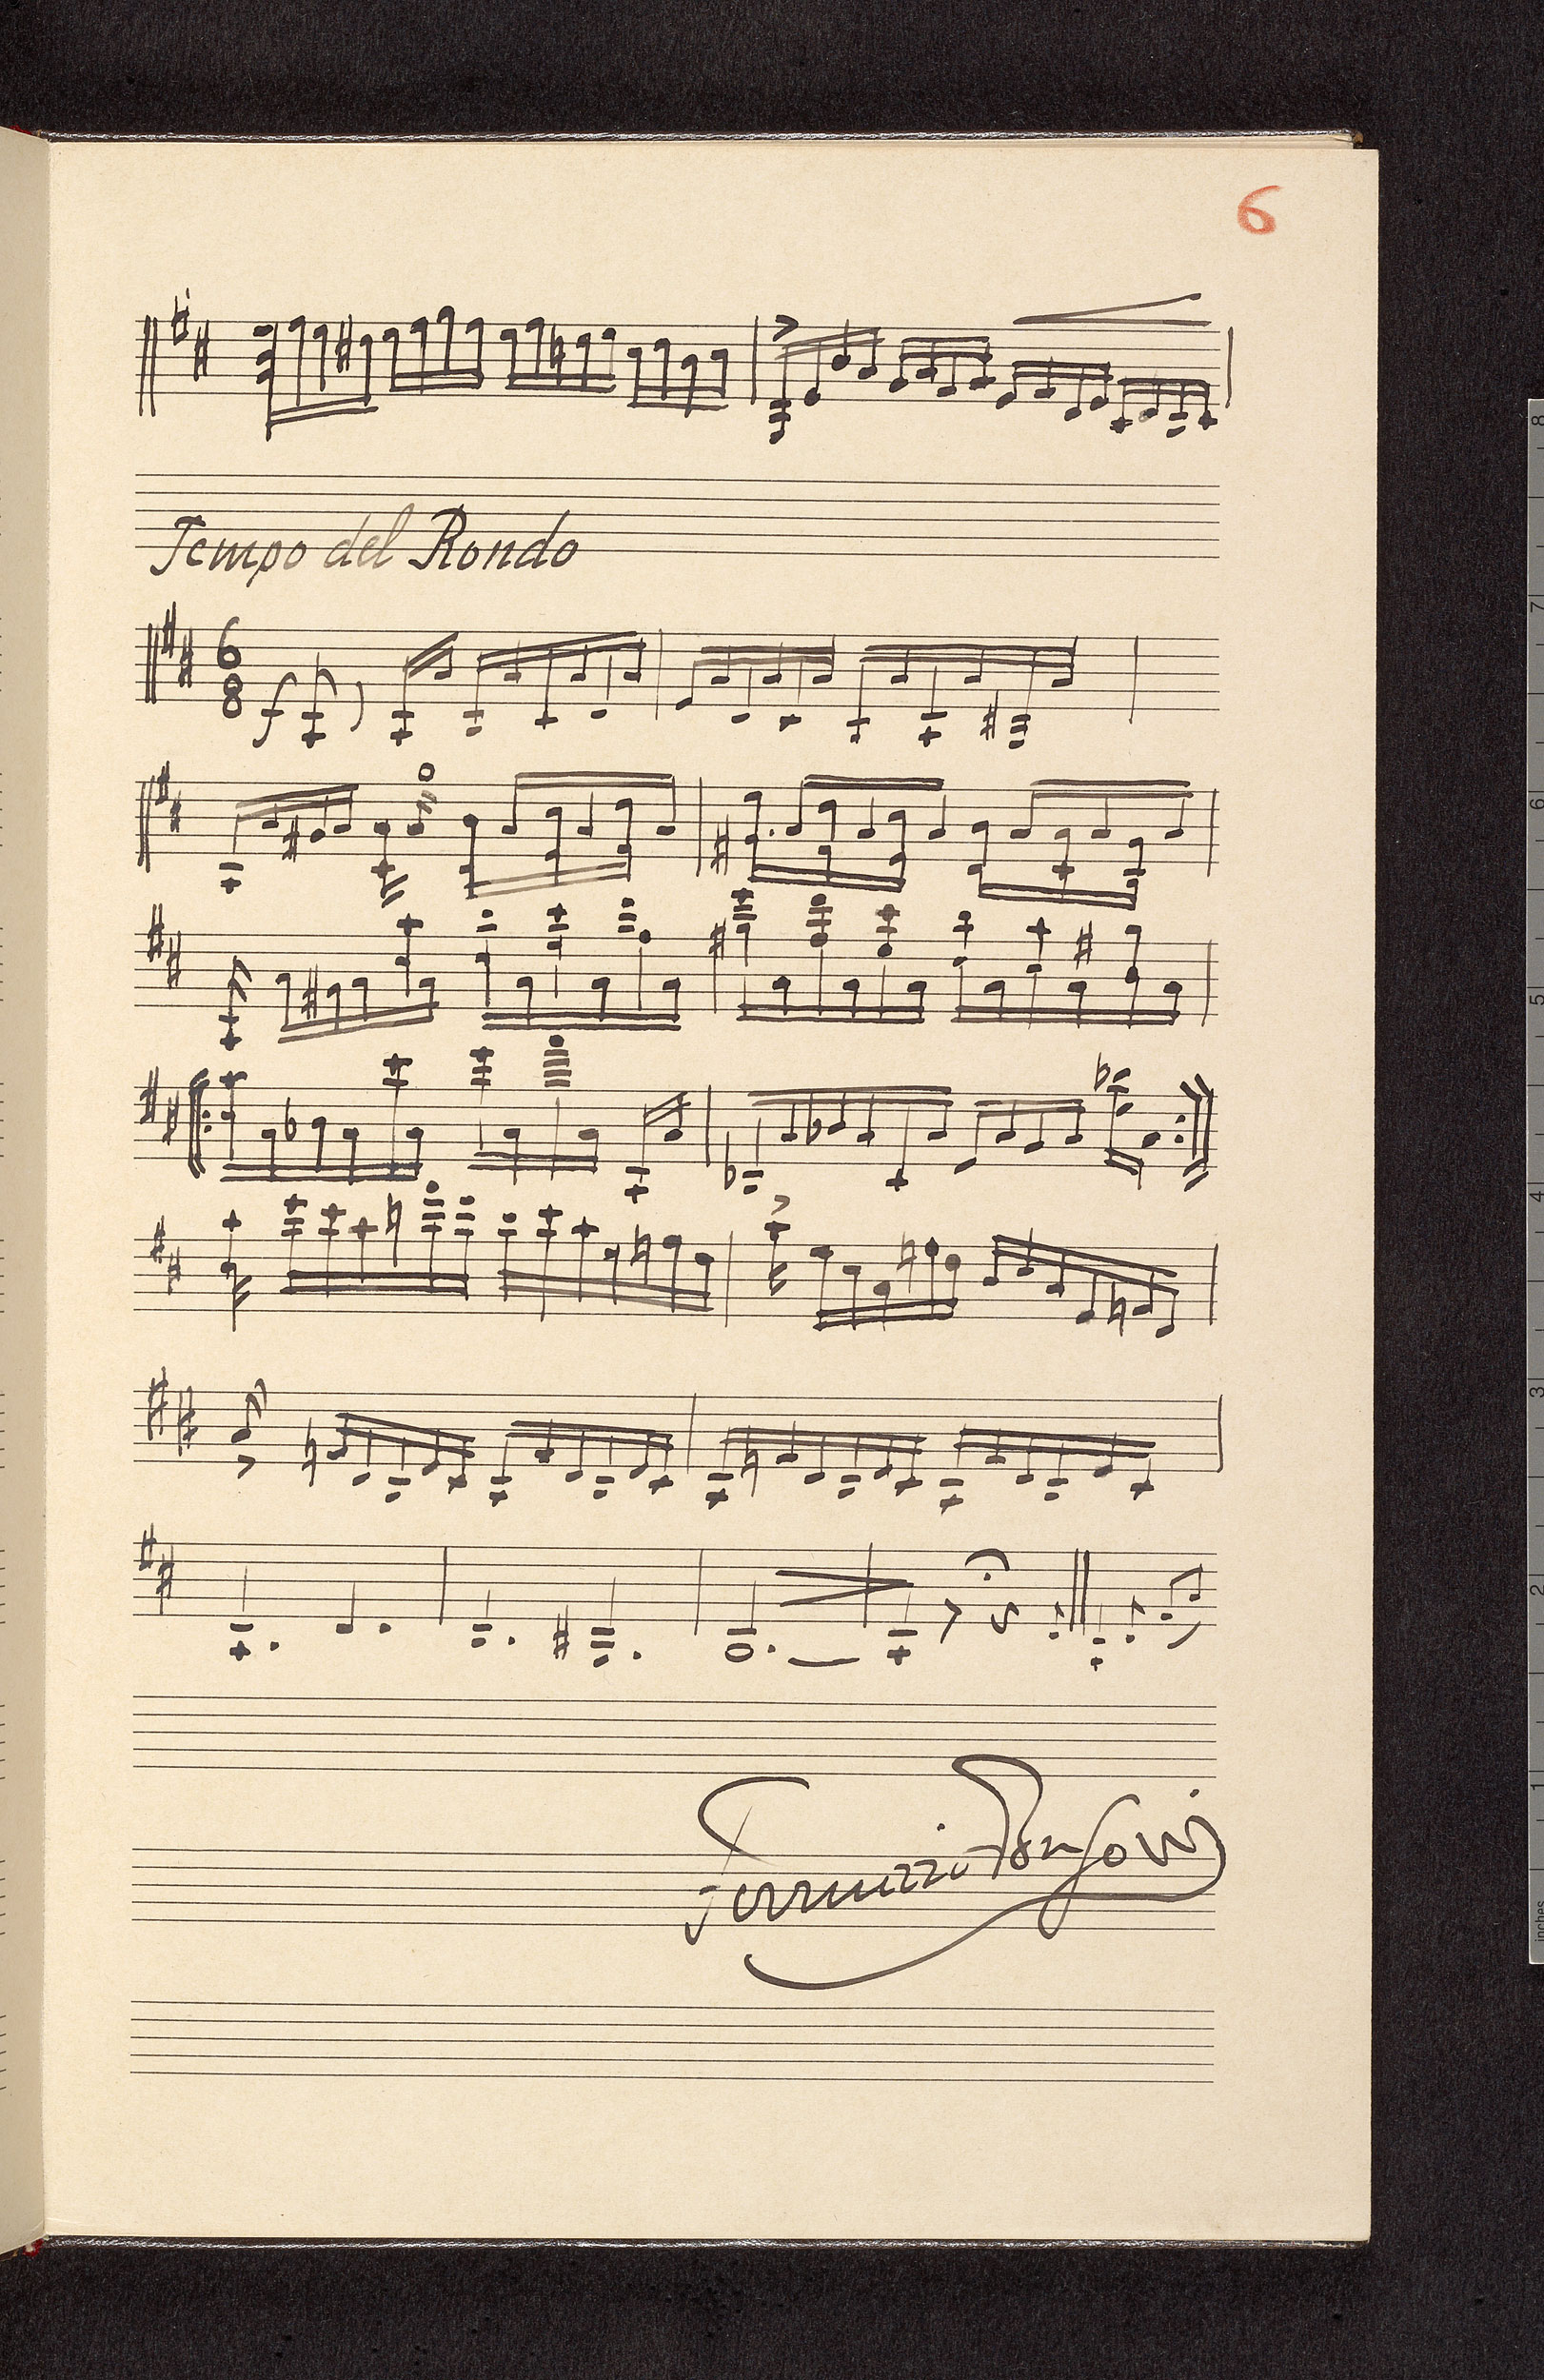 6
Tempo del Rondo
6
8
f
8
7
6
5
4
3
2
1
inches